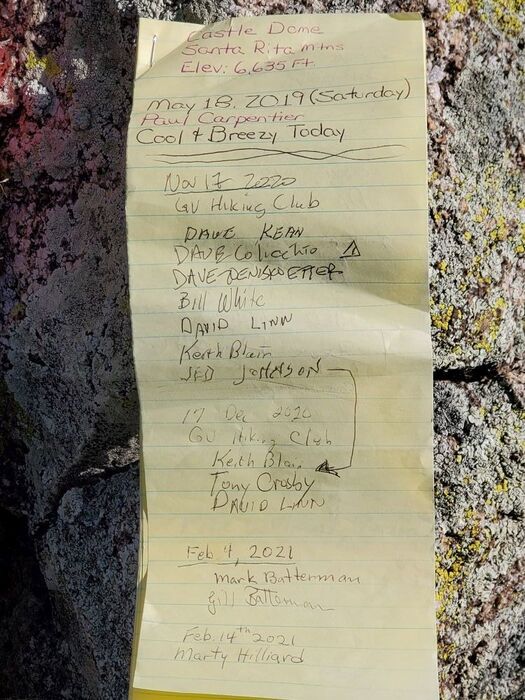 Castle Dome
Santa Rita mtns
Elev: 6,635 Ft.
May 18, 2019 (Saturday)
Paul Carpentier
Cool + Breezy Today
Nov 17 2020
GV Hiking Club
DAVE KEAN
DAVE
DAVE
Bill White
DAVID LINN
Keith Blair
JED JOHNSON
17 Dec 2020
GV Hiking Club
Keith Blair
Tony Crosby
DAVID LINN
Feb 4, 2021
Mark Batterman
Jill Batterman
Feb. 14th 2021
Marty Hilliard